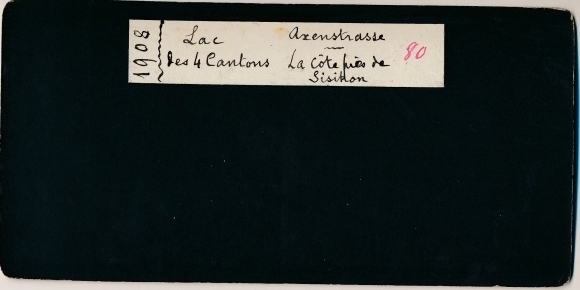 1908
Lac
des 4 Cantons
Axenstrasse
La Côte près de
Sisikon
80